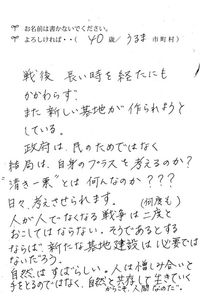 お名前は書かないでください。
よろしければ・・(40歳/うるま市町村)
戦後 長い時を経たにも
かかわらず、
また新しい基地が作られようと
している。
政府は、民のためではなく
結局は、自身のプラスを考えるのか?
清き一票”とは何んなのか???
日々、考えさせられます。(何度も)
人が人でなくなる戦争は二度と
おこしてはならない。そうであるとする
ならば、新たな基地建設は必要では
ないだろう。
自然はすばらしい。人は憎しみ合いと
手をとるのではなく、自然と共存し生きていく
からこそ、人間なのだ。